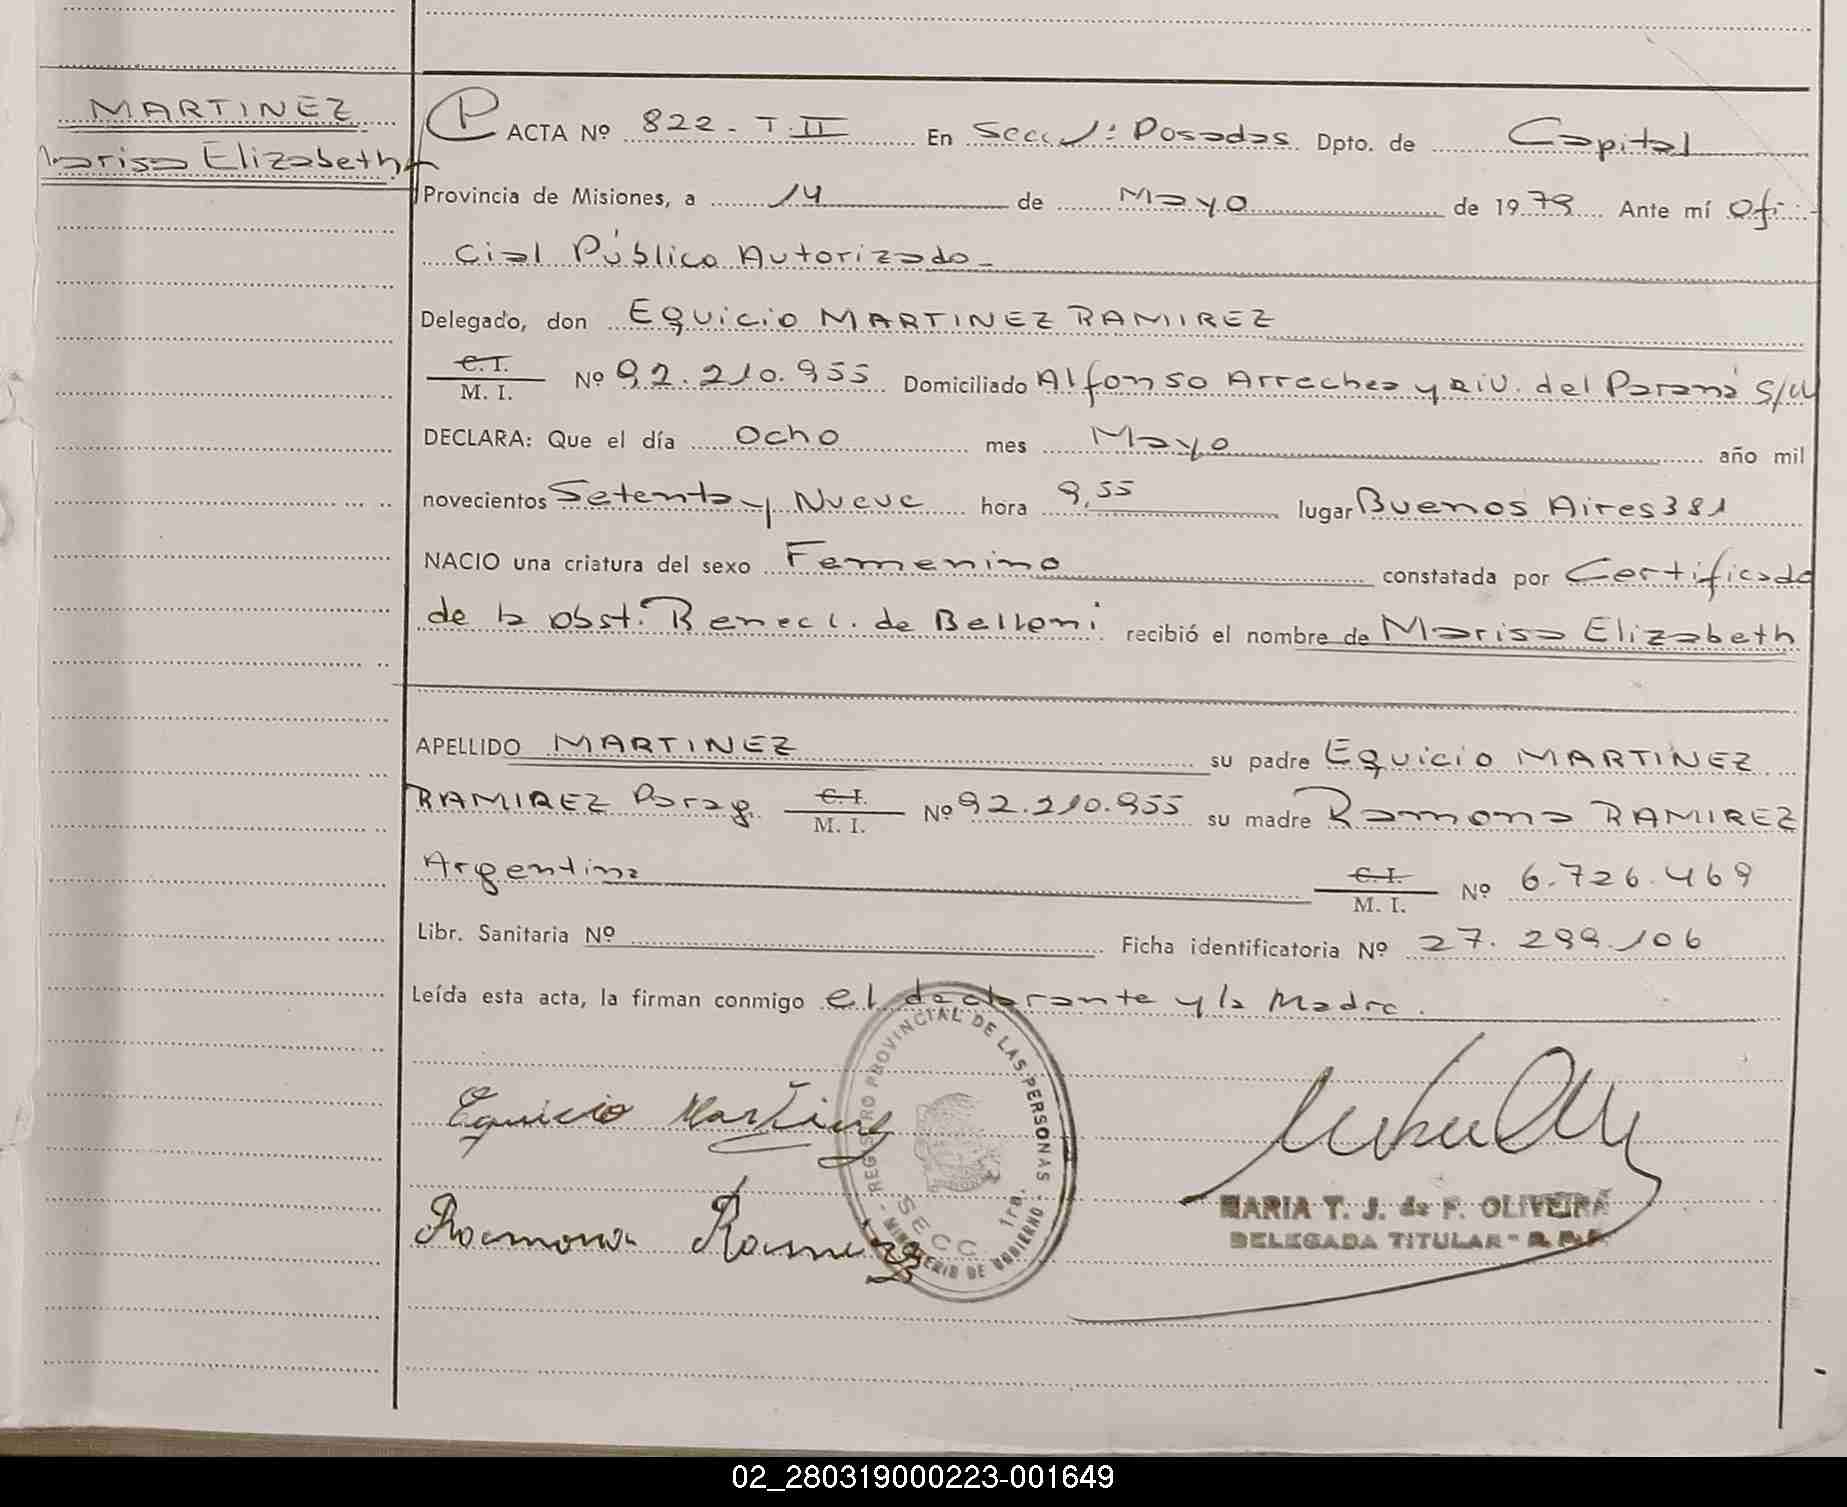 MARTINEZ
Marisa Elizabeth
P ACTA Nº 822 - T. II En Secc. 1ª Posadas Dpto. de Capital
Provincia de Misiones, a 14 de Mayo de 1979 Ante mí Ofi-
cial Público Autorizado -
Delegado, don Equicio MARTINEZ RAMIREZ
C. I.
M. I. Nº 92.210.955 Domiciliado Alfonso Arrechea y Riv. del Paraná S/N
DECLARA: Que el día Ocho mes Mayo año mil
novecientos Setenta y Nueve hora 9,55 lugar Buenos Aires 381
NACIO una criatura del sexo Femenino constatada por Certificado
de la obst. de Belloni recibió el nombre de Marisa Elizabeth
APELLIDO MARTINEZ su padre Equicio MARTINEZ
RAMIREZ Parag. C. I. M. I. Nº 92.210.955 su madre Ramona RAMIREZ
Argentina C. I. M. I. Nº 6.726.469
Libr. Sanitaria Nº Ficha identificatoria Nº 27.299.106
Leída esta acta, la firman conmigo el declarante y la Madre.
Equicio Martinez
Ramona Ramirez
REGISTRO PROVINCIAL DE LAS PERSONAS
SECC. 1ra.
MINISTERIO DE GOBIERNO
MARIA T. J. de F. OLIVEIRA
DELEGADA TITULAR - R. P. P.
02_280319000223-001649